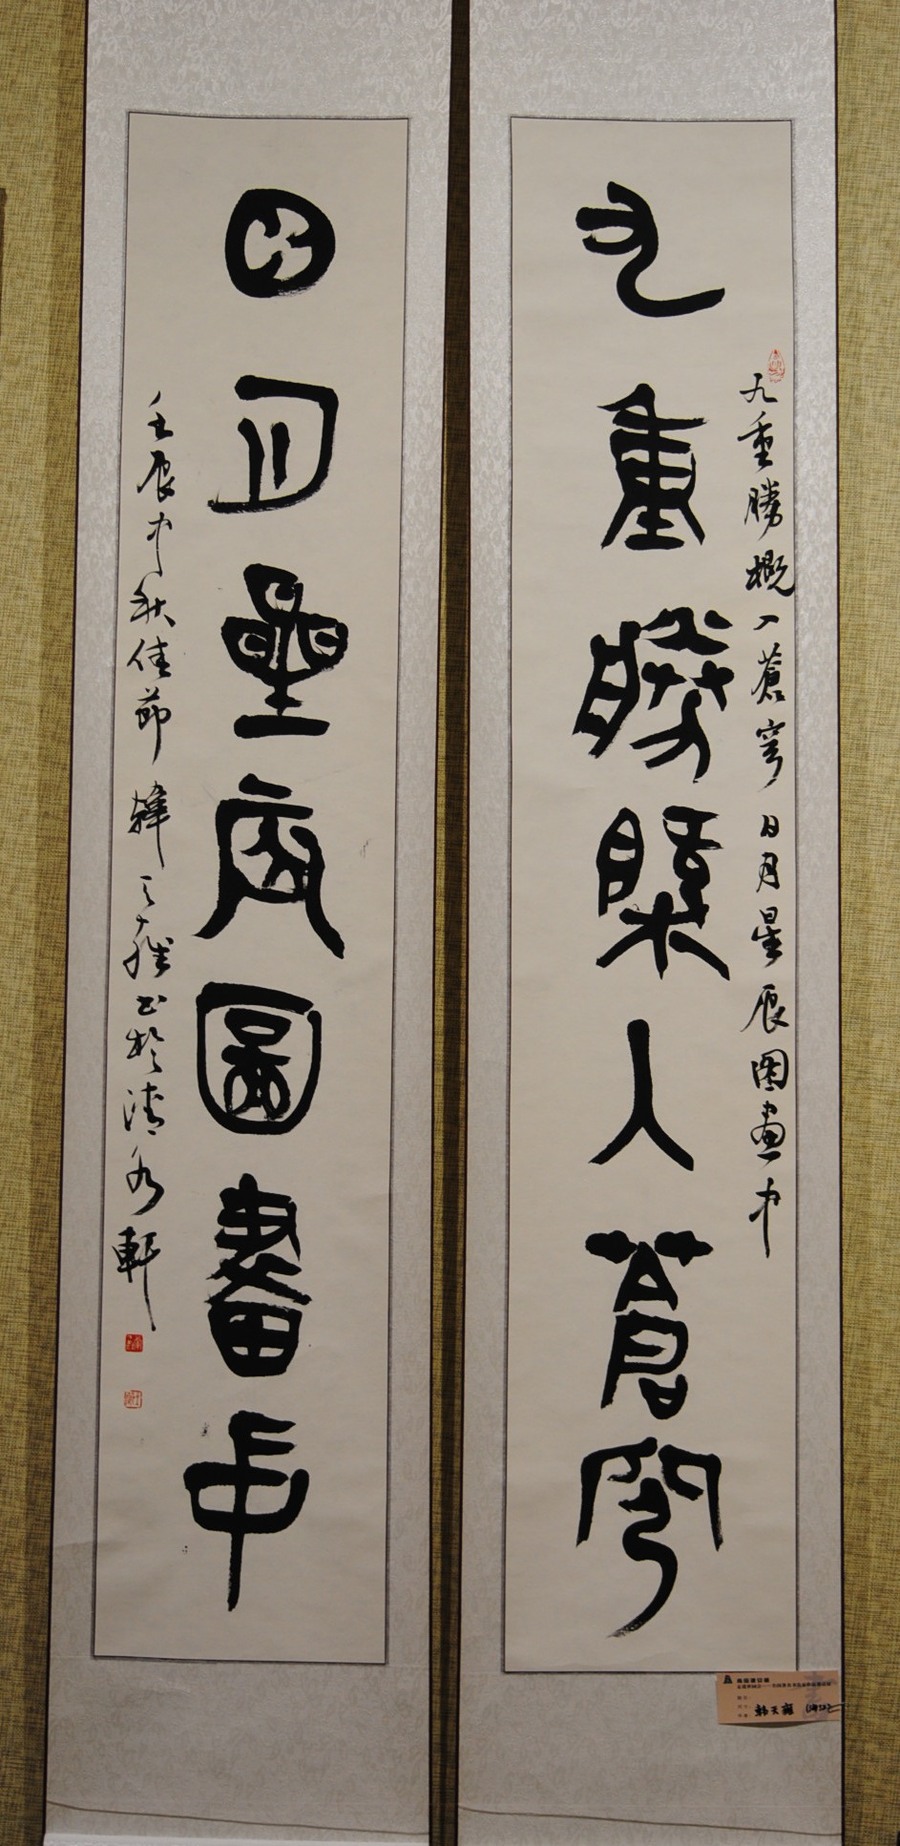 九重勝概人蒼穹
九重勝概人蒼穹 日月星辰圖畫中
日月星辰圖畫中
壬辰中秋佳節 韓天雍書於清水軒
韩天雍